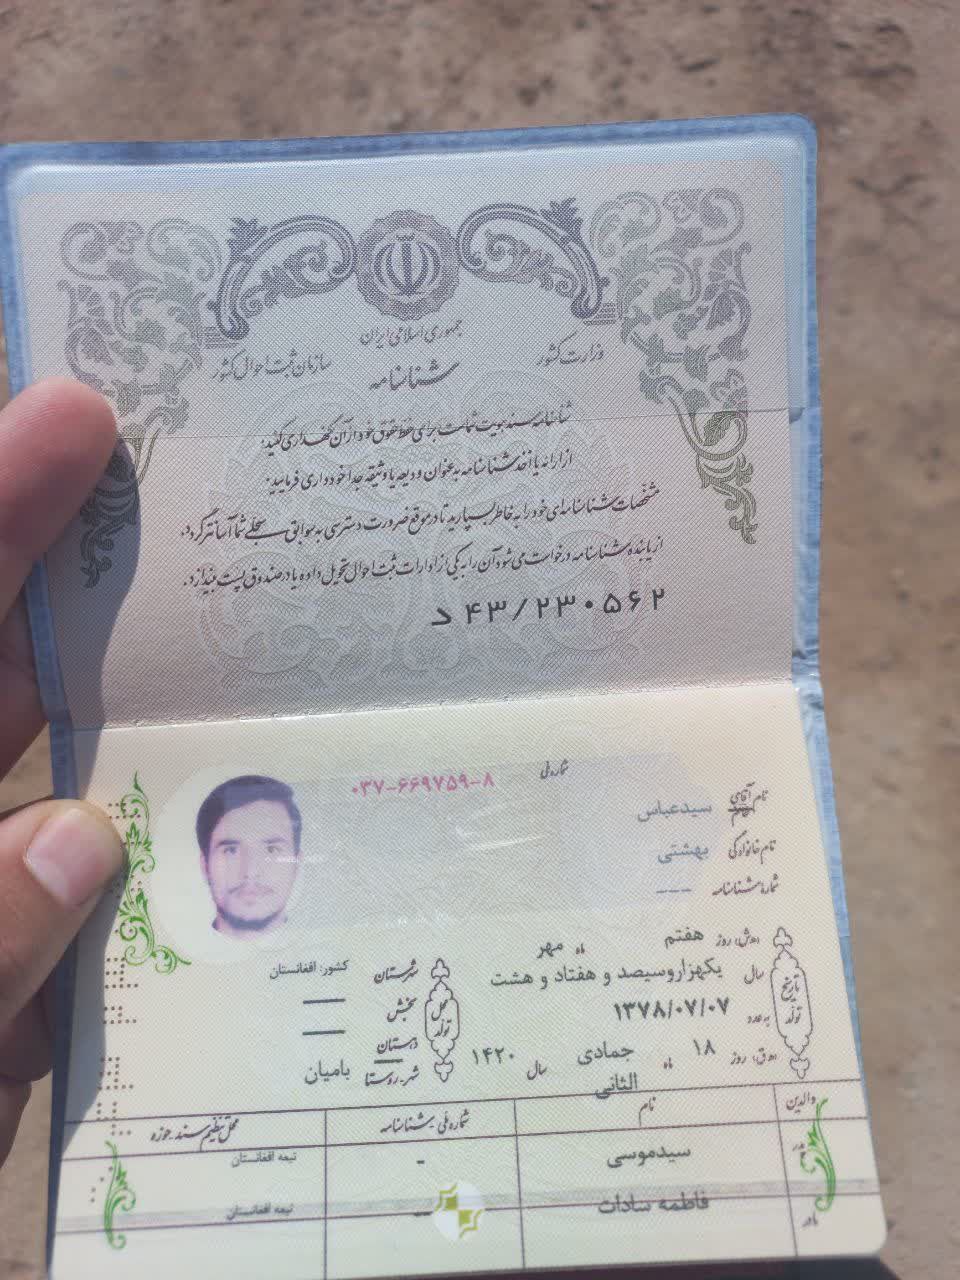 جمهوری اسلامی ایران
وزارت کشور
سازمان ثبت احوال کشور
شناسنامه
شناسنامه سند هویت شماست برای حفظ حقوق خود از آن نگهداری کنید.
از ارائه یا اخذ شناسنامه به عنوان ودیعه یا وثیقه جداً خودداری فرمایید.
مشخصات شناسنامه‌ای خود را به خاطر بسپارید تا در موقع ضرورت دسترسی به سوابق سجلی شما آسانتر گردد.
از یابنده شناسنامه درخواست می‌شود آن را به یکی از ادارات ثبت احوال تحویل داده یا در صندوق پست بیندازد.
د ۴۳/۲۳۰۵۶۲
شماره ملی ۰۳۷-۶۶۹۷۵۹-۸
نام آقای خانم سیدعباس
نام خانوادگی بهشتی
شماره شناسنامه ---
تاریخ تولد
(ه‍.ش) روز هفتم ماه مهر
سال یکهزاروسیصد و هفتاد و هشت
به عدد ۱۳۷۸/۰۷/۰۷
(ه‍.ق) روز ۱۸ ماه جمادی الثانی سال ۱۴۲۰
محل تولد
شهرستان کشور: افغانستان
بخش —
دهستان —
شهر-روستا بامیان
والدین نام شماره ملی-شناسنامه محل تنظیم سند-حوزه
پدر سیدموسی - تبعه افغانستان
مادر فاطمه سادات تبعه افغانستان